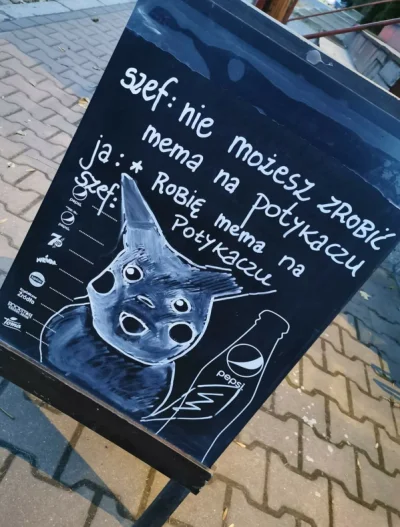 szef: nie możesz zrobić
mema na potykaczu
ja: * Robię mema na
Potykaczu
szef:
pepsi